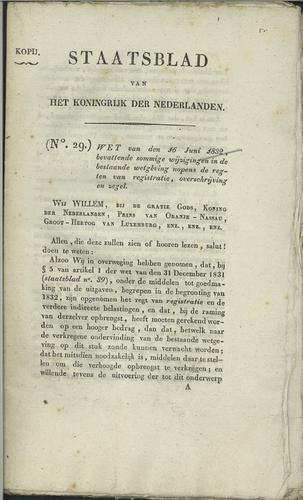 KOPIJ.
STAATSBLAD
VAN
HET KONINGRIJK DER NEDERLANDEN.
(N°. 29.) WET van den 16 Juni 1832,
bevattende sommige wijzigingen in de
bestaande wetgeving nopens de reg-
ten van registratie, overschrijving
en zegel.
WIJ WILLEM, BIJ DE GRATIE GODS, KONING
DER NEDERLANDEN, PRINS VAN ORANJE-NASSAU,
GROOT-HERTOG VAN LUXEMBURG, ENZ., ENZ., ENZ.
Allen, die deze zullen zien of hooren lezen, salut!
doen te weten:
Alzoo Wij in overweging hebben genomen, dat, bij
§ 5 van artikel 1 der wet van den 31 December 1831
(staatsblad n°. 39), onder de middelen tot goedma-
king van de uitgaven, begrepen in de begrooting van
1832, zijn opgenomen het regt van registratie en de
verdere indirecte belastingen, en dat, bij de raming
van derzelver opbrengst, heeft moeten gerekend wor-
den op een hooger bedrag, dan dat, hetwelk naar
de verkregene ondervinding van de bestaande wetge-
ving op dit stuk zonde kunnen verwacht worden;
dat het mitsdien noodzakelijk is, middelen daar te stel-
len om die verhoogde opbrengst te verkrijgen; en
willende tevens de uitvoering der tot dit onderwerp
A